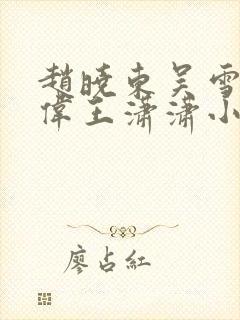 趙曉東吴雪
偉王瀟瀟小
廖占紅